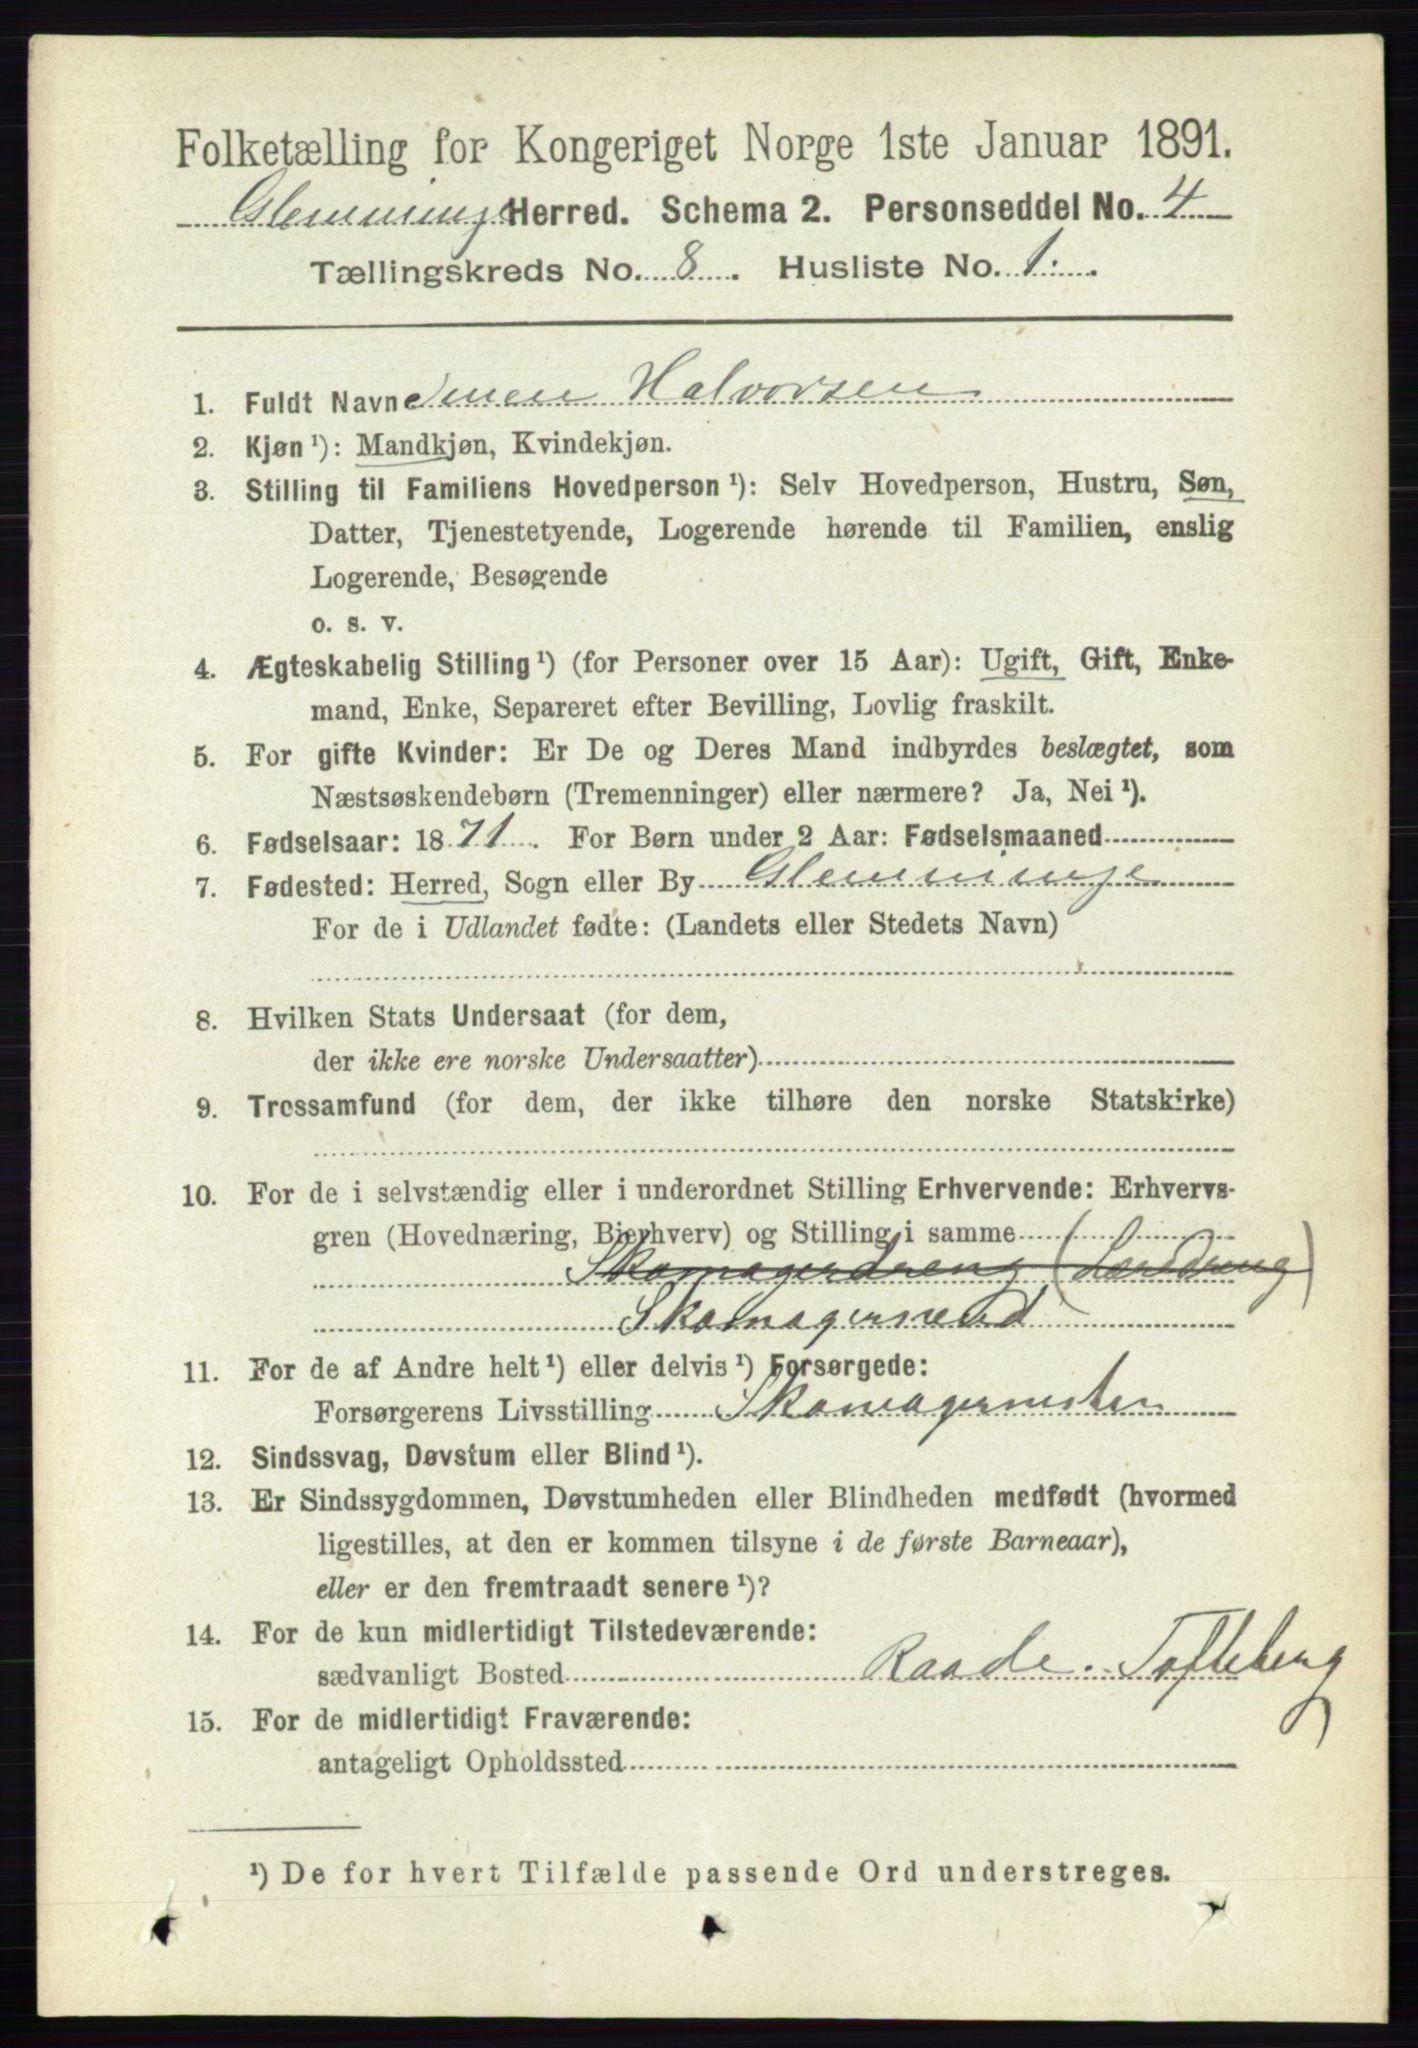 Folketælling for Kongeriget Norge 1ste Januar 1891.
Glemminge Herred. Schema 2. Personseddel No. 4
Tællingskreds No. 8. Husliste No. 1.
1. Fuldt Navn Simen Halvorsen
2. Kjøn ¹): Mandkjøn, Kvindekjøn.
3. Stilling til Familiens Hovedperson ¹): Selv Hovedperson, Hustru, Søn,
Datter, Tjenestetyende, Logerende hørende til Familien, enslig
Logerende, Besøgende
o. s. v.
4. Ægteskabelig Stilling ¹) (for Personer over 15 Aar): Ugift, Gift, Enke-
mand, Enke, Separeret efter Bevilling, Lovlig fraskilt.
5. For gifte Kvinder: Er De og Deres Mand indbyrdes beslægtet, som
Næstsøskendebørn (Tremenninger) eller nærmere? Ja, Nei ¹).
6. Fødselsaar: 1871. For Børn under 2 Aar: Fødselsmaaned
7. Fødested: Herred, Sogn eller By Glemminge
For de i Udlandet fødte: (Landets eller Stedets Navn)
8. Hvilken Stats Undersaat (for dem,
der ikke ere norske Undersaatter)
9. Trossamfund (for dem, der ikke tilhøre den norske Statskirke)
10. For de i selvstændig eller i underordnet Stilling Erhvervende: Erhvervs-
gren (Hovednæring, Bierhverv) og Stilling i samme
Skomagerdreng (Læredreng)
Skomagersvend
11. For de af Andre helt ¹) eller delvis ¹) Forsørgede:
Forsørgerens Livsstilling Skomagermester
12. Sindssvag, Døvstum eller Blind ¹).
13. Er Sindssygdommen, Døvstumheden eller Blindheden medfødt (hvormed
ligestilles, at den er kommen tilsyne i de første Barneaar),
eller er den fremtraadt senere ¹)?
14. For de kun midlertidigt Tilstedeværende:
sædvanligt Bosted Raade. Tofteberg
15. For de midlertidigt Fraværende:
antageligt Opholdssted
¹) De for hvert Tilfælde passende Ord understreges.